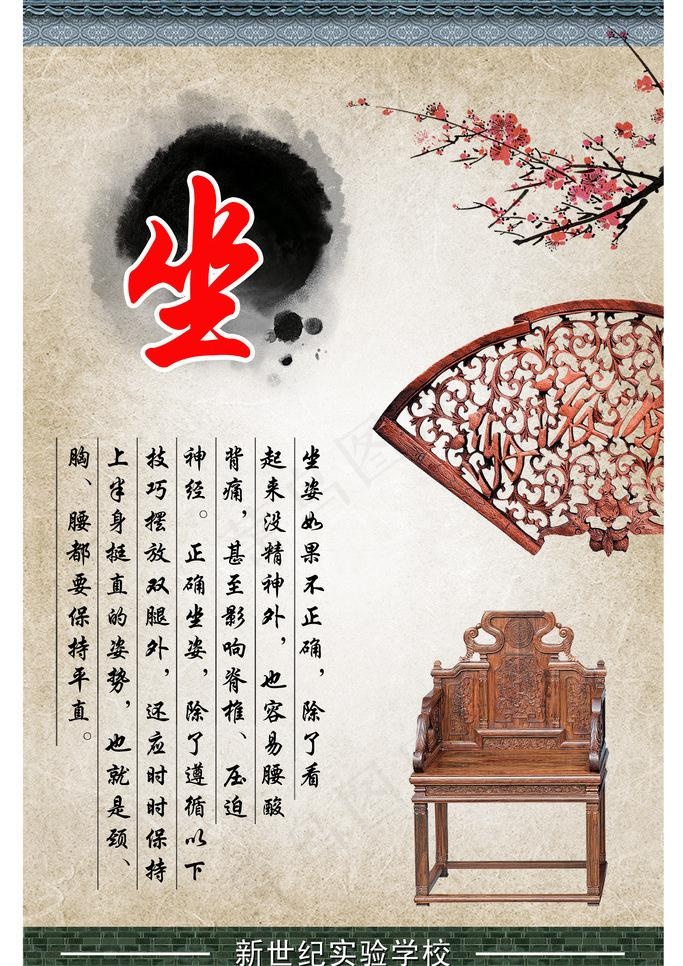 坐
坐姿如果不正确，除了看
起来没精神外，也容易腰酸
背痛，甚至影响脊椎、压迫
神经。正确坐姿，除了遵循以下
技巧摆放双腿外，还应时时保持
上半身挺直的姿势，也就是颈、
胸、腰都要保持平直。
新世纪实验学校